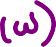 (ω)